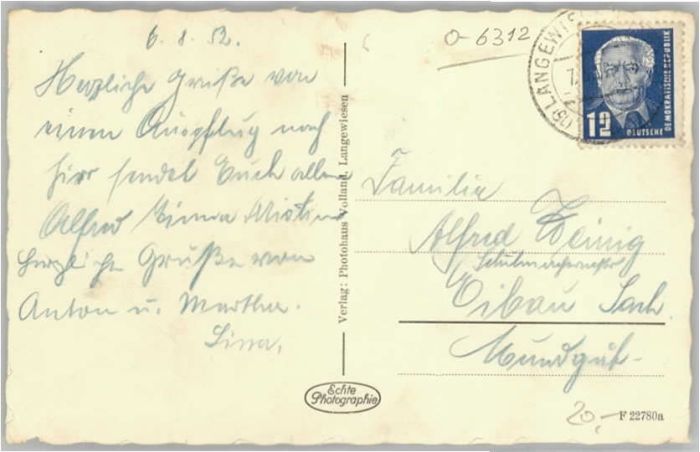 6.8.52.
Herzliche Grüße von
einem Ausflug nach
hier sendet Euch allen
Alfred
herzliche Grüße von
Anton u. Martha.
Lina,
Verlag: Photohaus Volland, Langewiesen
Echte
Photographie
O-6312
LANGEWIES
12
DEUTSCHE
DEMOKRATISCHE REPUBLIK
Familie
Alfred Heinig
Schuhmachermeister
Eibau Sach.
Mundgut-
20,-
F 22780a